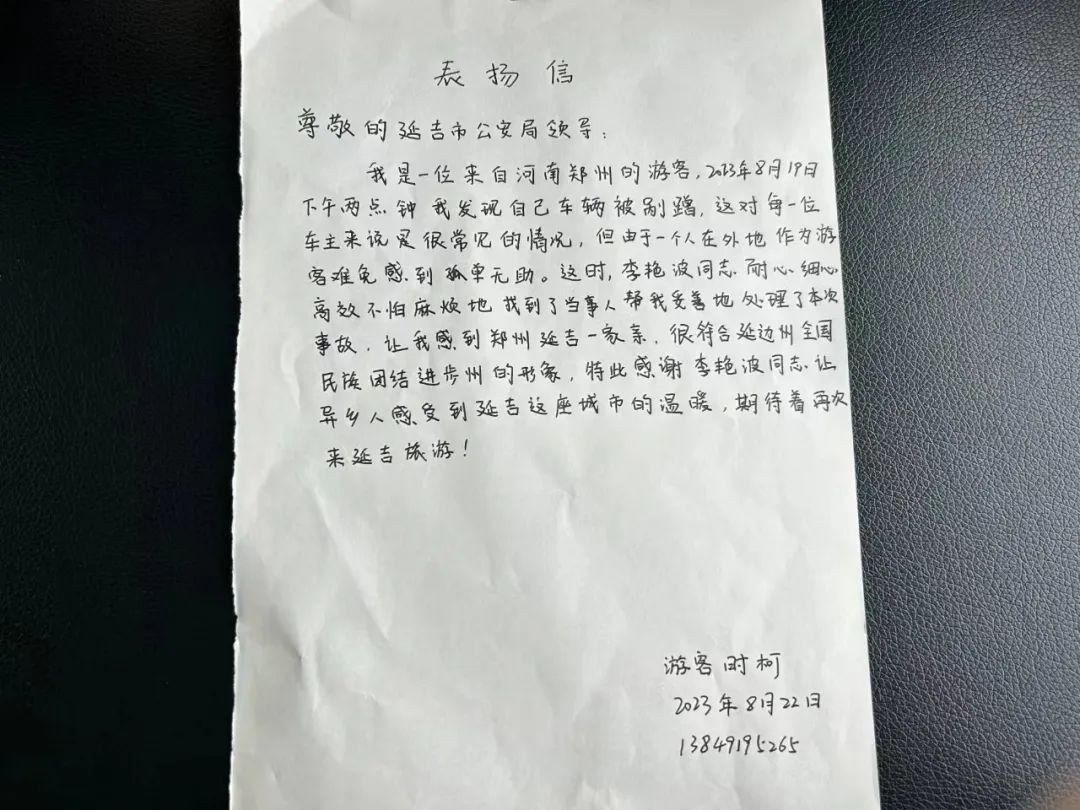 表扬信
尊敬的延吉市公安局领导:
我是一位来自河南郑州的游客,2023年8月19日
下午两点钟我发现自己车辆被剐蹭,这对每一位
车主来说是很常见的情况,但由于一个人在外地作为游
客难免感到孤单无助。这时,李艳波同志耐心细心
高效不怕麻烦地找到了当事人帮我妥善地处理了本次
事故,让我感到郑州延吉一家亲,很符合延边州全国
民族团结进步州的形象,特此感谢李艳波同志让
异乡人感受到延吉这座城市的温暖,期待着再次
来延吉旅游!
游客时柯
2023年8月22日
13849195265